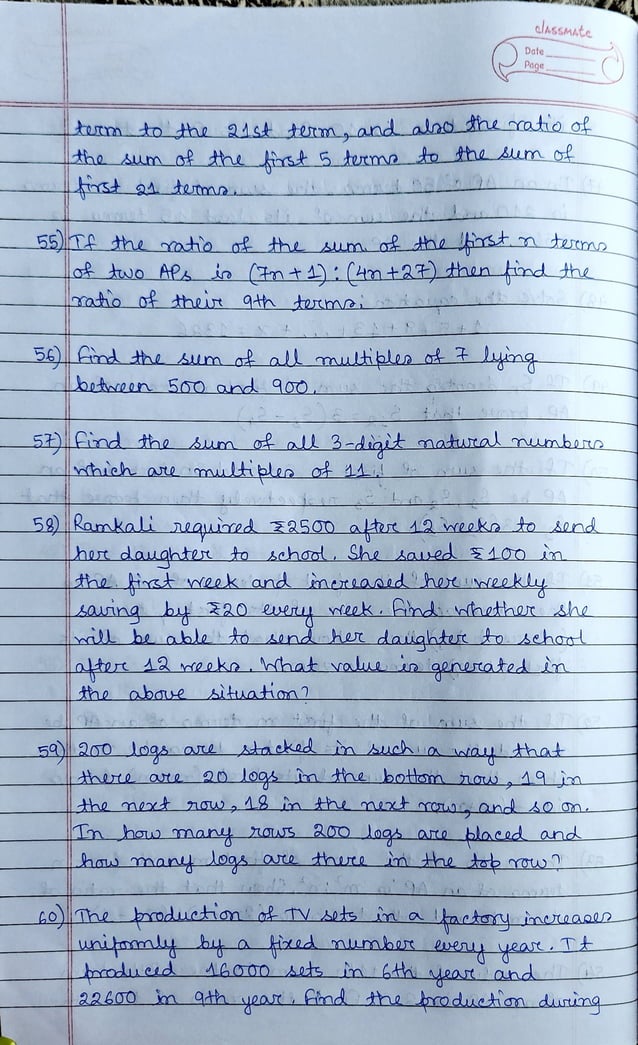 classmate
Date
Page
term to the 21st term, and also the ratio of
the sum of the first 5 terms to the sum of
first 21 terms.
55) If the ratio of the sum of the first n terms
of two APs is (7n+1):(4n+27) then find the
ratio of their 9th terms.
56) Find the sum of all multiples of 7 lying
between 500 and 900.
57) Find the sum of all 3-digit natural numbers
which are multiples of 11.
58) Ramkali required ₹2500 after 12 weeks to send
her daughter to school. She saved ₹100 in
the first week and increased her weekly
saving by ₹20 every week. Find whether she
will be able to send her daughter to school
after 12 weeks. What value is generated in
the above situation?
59) 200 logs are stacked in such a way that
there are 20 logs in the bottom row, 19 in
the next row, 18 in the next row, and so on.
In how many rows 200 logs are placed and
how many logs are there in the top row?
60) The production of TV sets in a factory increases
uniformly by a fixed number every year. It
produced 16000 sets in 6th year and
22600 in 9th year. Find the production during